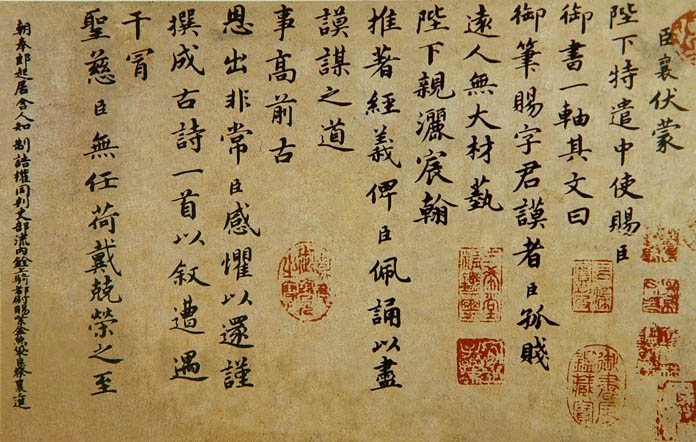 臣襄伏蒙
陛下特遣中使賜臣
御書一軸其文曰
御筆賜字君謨者臣孤賤
遠人無大材藝
陛下親灑宸翰
推著經義俾臣佩誦以盡
謨謀之道
事高前古
恩出非常臣感懼以還謹
撰成古詩一首以叙遭遇
干冒
聖慈臣無任荷戴兢榮之至
朝奉郎起居舍人知 制誥權同判吏部流內銓上騎都尉賜紫金魚袋蔡襄進
三希堂精鑑璽
宜子孫